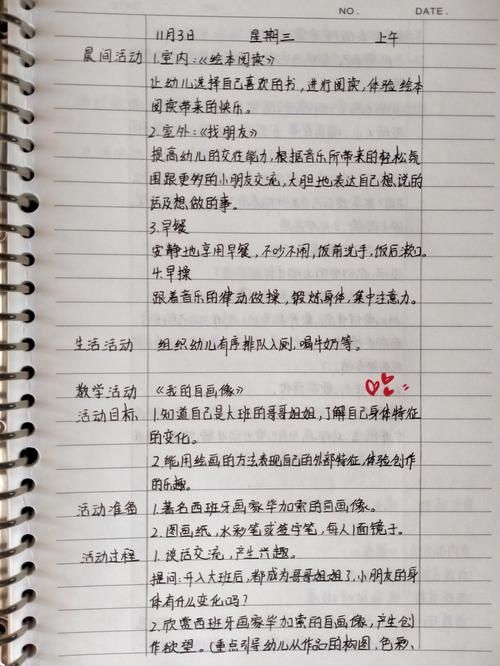 NO. DATE.
11月3日 星期三 上午
晨间活动 1.室内:《绘本阅读》
让幼儿选择自己喜欢的书,进行阅读,体验绘本
阅读带来的快乐。
2.室外:《找朋友》
提高幼儿的交往能力,根据音乐所带来的轻松氛
围跟更多的小朋友交流,大胆地表达自己想说的
话及想做的事。
3.早餐
安静地享用早餐,不吵不闹,饭前洗手,饭后漱口。
4.早操
跟着音乐的律动做操,锻炼身体,集中注意力。
生活活动 组织幼儿有序排队入厕,喝牛奶等。
教学活动 《我的自画像》
活动目标 1.知道自己是大班的哥哥姐姐,了解自己身体特征
的变化。
2.能用绘画的方法表现自己的外部特征,体验创作
的乐趣。
活动准备 1.著名西班牙画家毕加索的自画像。
2.图画纸,水彩笔或签字笔,每人1面镜子。
活动过程 1.谈话交流,产生兴趣。
提问:升入大班后,都成为哥哥姐姐了,小朋友的身
体有什么变化吗?
2.欣赏西班牙画家毕加索的自画像,产生创
作欲望。(重点引导幼儿从作品的构图、色彩、